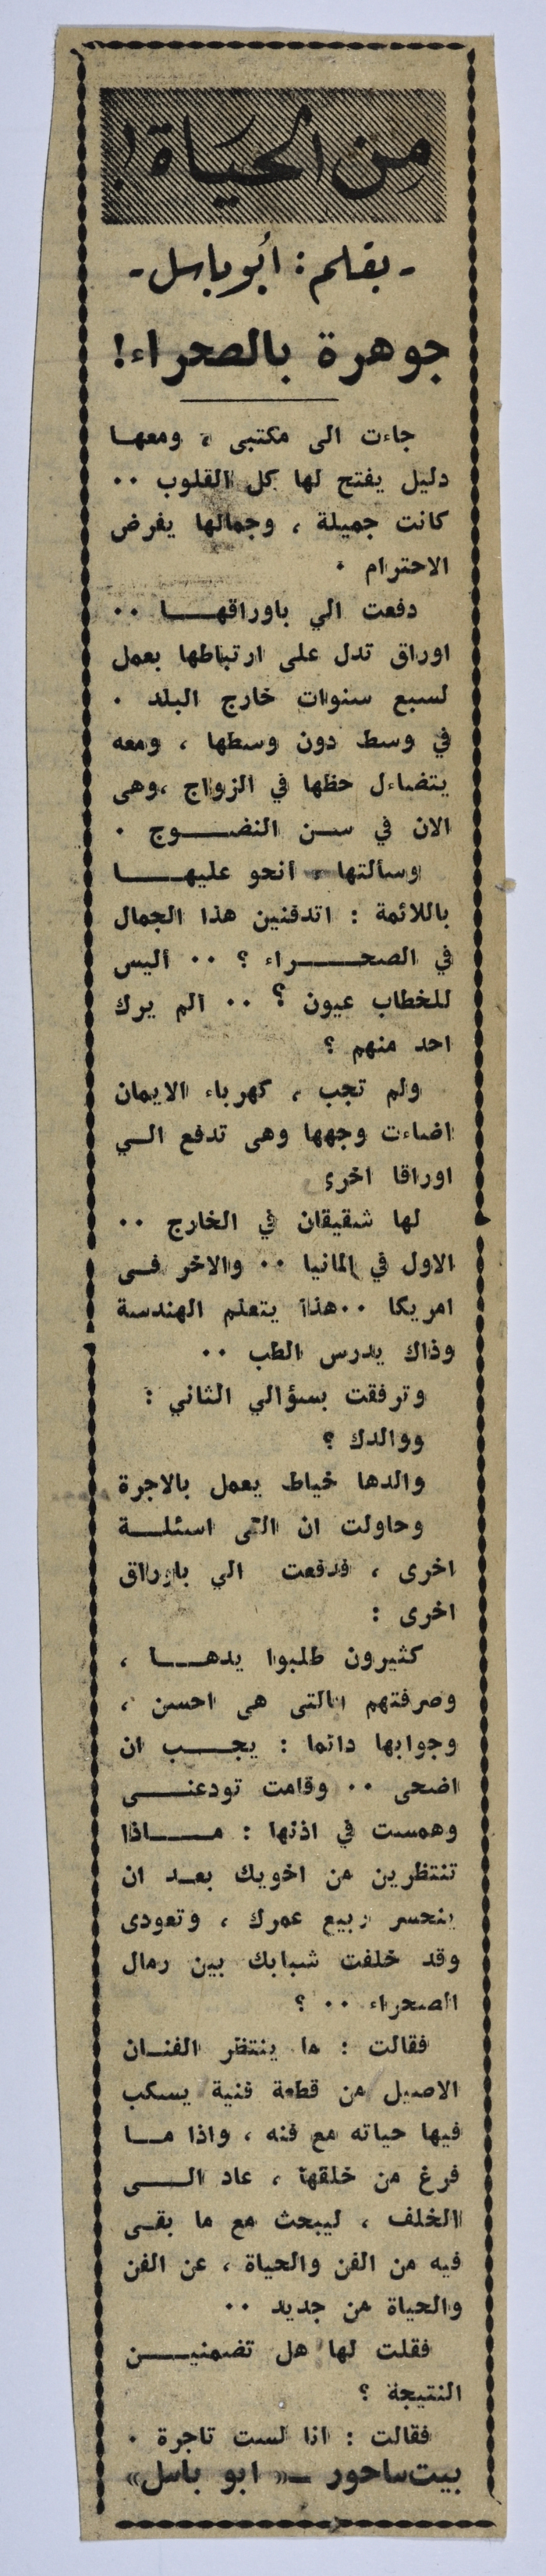 من الحياة!
- بقلم: أبو باسل -
جوهرة بالصحراء!
جاءت الى مكتبي ، ومعهـا
دليل يفتح لها كل القلوب ..
كانت جميلة ، وجمالها يفرض
الاحترام .
دفعت الي باوراقهـــا ..
اوراق تدل على ارتباطها بعمل
لسبع سنوات خارج البلد .
في وسط دون وسطها ، ومعه
يتضاءل حظها في الزواج ،وهى
الان في ســن النضـــوج .
وسألتها ، انحو عليهــــا
باللائمة : اتدفنين هذا الجمال
في الصحــــراء ؟ .. اليس
للخطاب عيون ؟ .. الم يرك
احد منهم ؟
ولم تجب ، كهرباء الايمان
اضاءت وجهها وهى تدفع الــي
اوراقا اخرى
لها شقيقان في الخارج ..
الاول في المانيا .. والاخر فــى
امريكا ..هذا يتعلم الهندسة
وذاك يدرس الطب ..
وترفقت بسؤالي الثاني :
ووالدك ؟
والدها خياط يعمل بالاجرة
وحاولت ان القى اسئلــة
اخرى ، فدفعت الي باوراق
اخرى :
كثيرون طلبوا يدهـــا ،
وصرفتهم بالتى هى احسن ،
وجوابها دائما : يجــــب ان
اضحى .. وقامت تودعنـــى
وهمست في اذنها : مــــاذا
تنتظرين من اخويك بعـد ان
ينحسر ربيع عمرك ، وتعودى
وقد خلفت شبابك بين رمال
الصحراء .. ؟
فقالت : ما ينتظر الفنــان
الاصيل من قطعة فنية يسكب
فيها حياته مع فنه ، واذا مــا
فرغ من خلقها ، عاد الـــى
الخلف ، ليبحث مع ما بقـى
فيه من الفن والحياة ، عن الفن
والحياة من جديد ..
فقلت لها هل تضمنيـــن
النتيجة ؟
فقالت : انا لست تاجرة .
بيت ساحور ــ« ابو باسل»